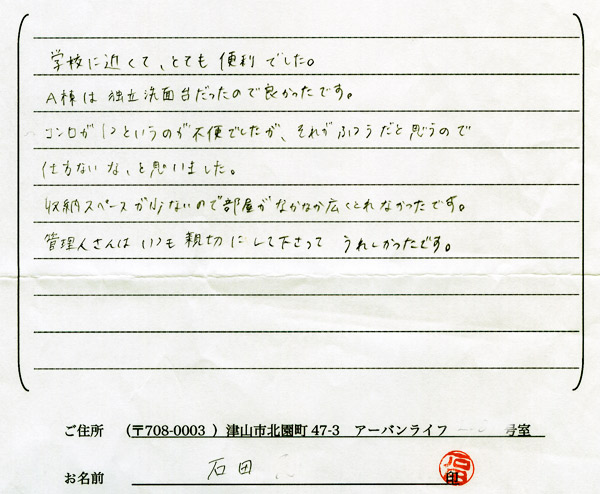 学校に近くて、とても便利でした。
A棟は独立洗面台だったので良かったです。
コンロが1つというのが不便でしたが、それがふつうだと思うので
仕方ないな、と思いました。
収納スペースが少ないので部屋がなかなか広くとれなかったです。
管理人さんはいつも親切にして下さって うれしかったです。
ご住所 (〒708-0003 ) 津山市北園町 47-3 アーバンライフ 号室
お名前 石田 印